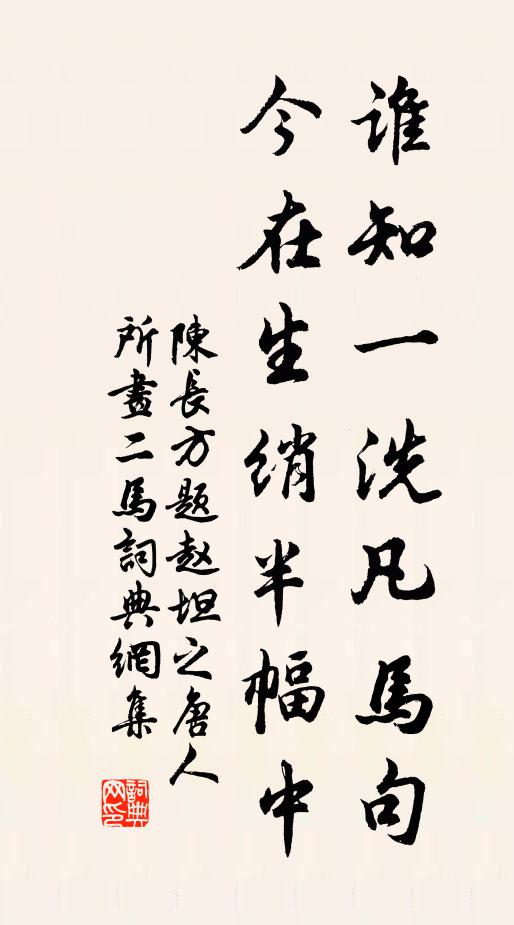 誰知一洗凡馬句
今在生绡半幅中
陳長方題赵坦之唐人
所畫二馬詞典網集
詞典网印